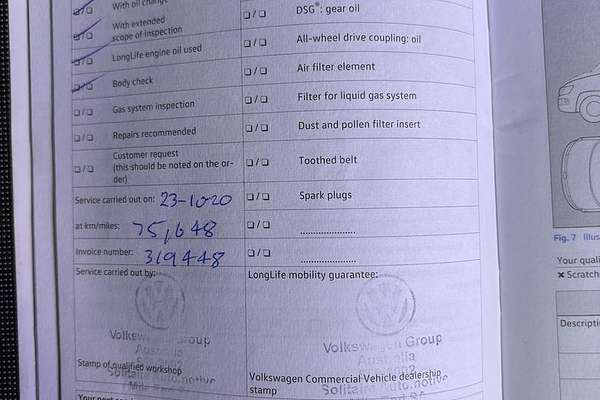 ❑/❑ With oil change
❑/❑ DSG®: gear oil
❑/❑ With extended scope of inspection
❑/❑ All-wheel drive coupling: oil
❑/❑ LongLife engine oil used
❑/❑ Air filter element
❑/❑ Body check
❑/❑ Filter for liquid gas system
❑/❑ Gas system inspection
❑/❑ Dust and pollen filter insert
❑/❑ Repairs recommended
❑/❑ Toothed belt
❑/❑ Customer request
(this should be noted on the or-
der)
Service carried out on: 23-10-20
❑/❑ Spark plugs
at km/miles: 75,648
❑/❑ ......................
Invoice number: 319448
❑/❑ ......................
Service carried out by:
LongLife mobility guarantee:
Volkswagen Group
Australia
Stamp of qualified workshop
Solitaire Automotive
Volkswagen Group
Australia
Volkswagen Commercial Vehicle dealership
stamp
Solitaire Automotive
Fig. 7
Your quali
✖ Scratch
Descripti